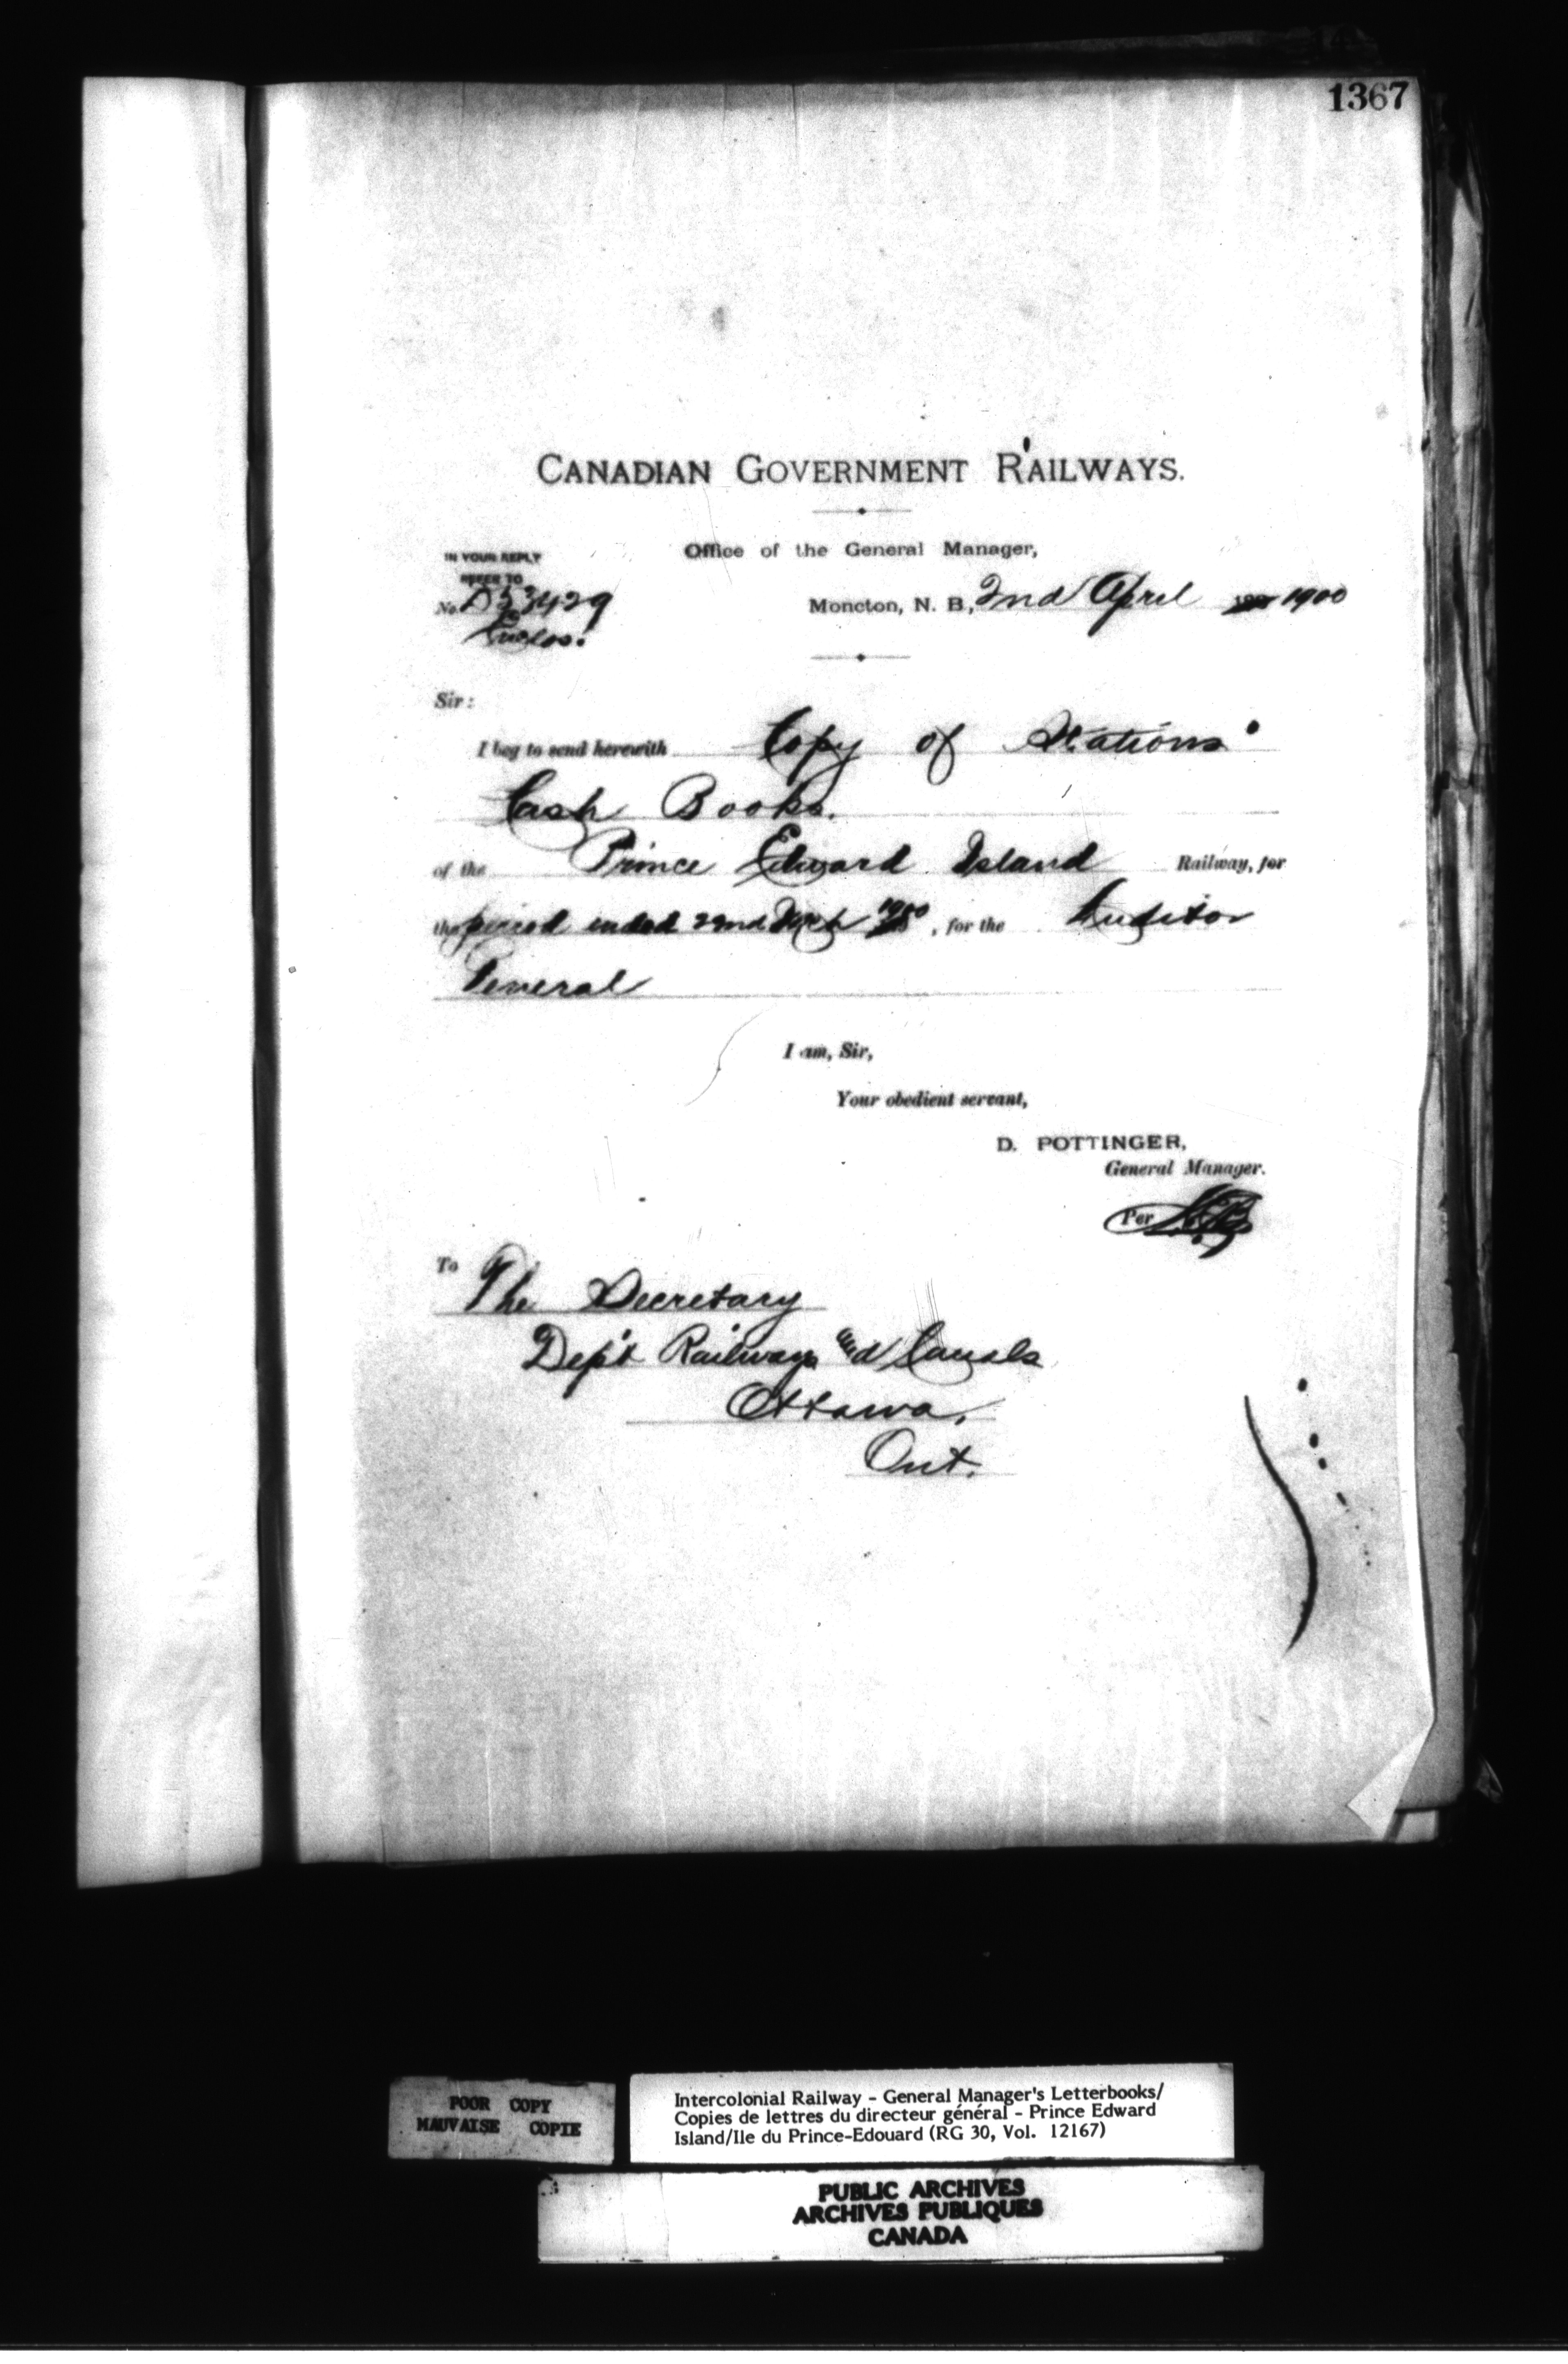 1367
CANADIAN GOVERNMENT RAILWAYS.
Office of the General Manager,
IN YOUR REPLY
REFER TO
No. D53429
Enclos.
Moncton, N. B., 2nd April 1900
Sir:
I beg to send herewith Copy of Stations'
Cash Books.
of the Prince Edward Island Railway, for
the period ended 22nd Mch 1900, for the Auditor
General
I am, Sir,
Your obedient servant,
D. POTTINGER,
General Manager.
Per
To The Secretary
Dep't Railways and Canals
Ottawa,
Ont.
POOR COPY
MAUVAISE COPIE
Intercolonial Railway - General Manager's Letterbooks/
Copies de lettres du directeur général - Prince Edward
Island/Ile du Prince-Edouard (RG 30, Vol. 12167)
PUBLIC ARCHIVES
ARCHIVES PUBLIQUES
CANADA